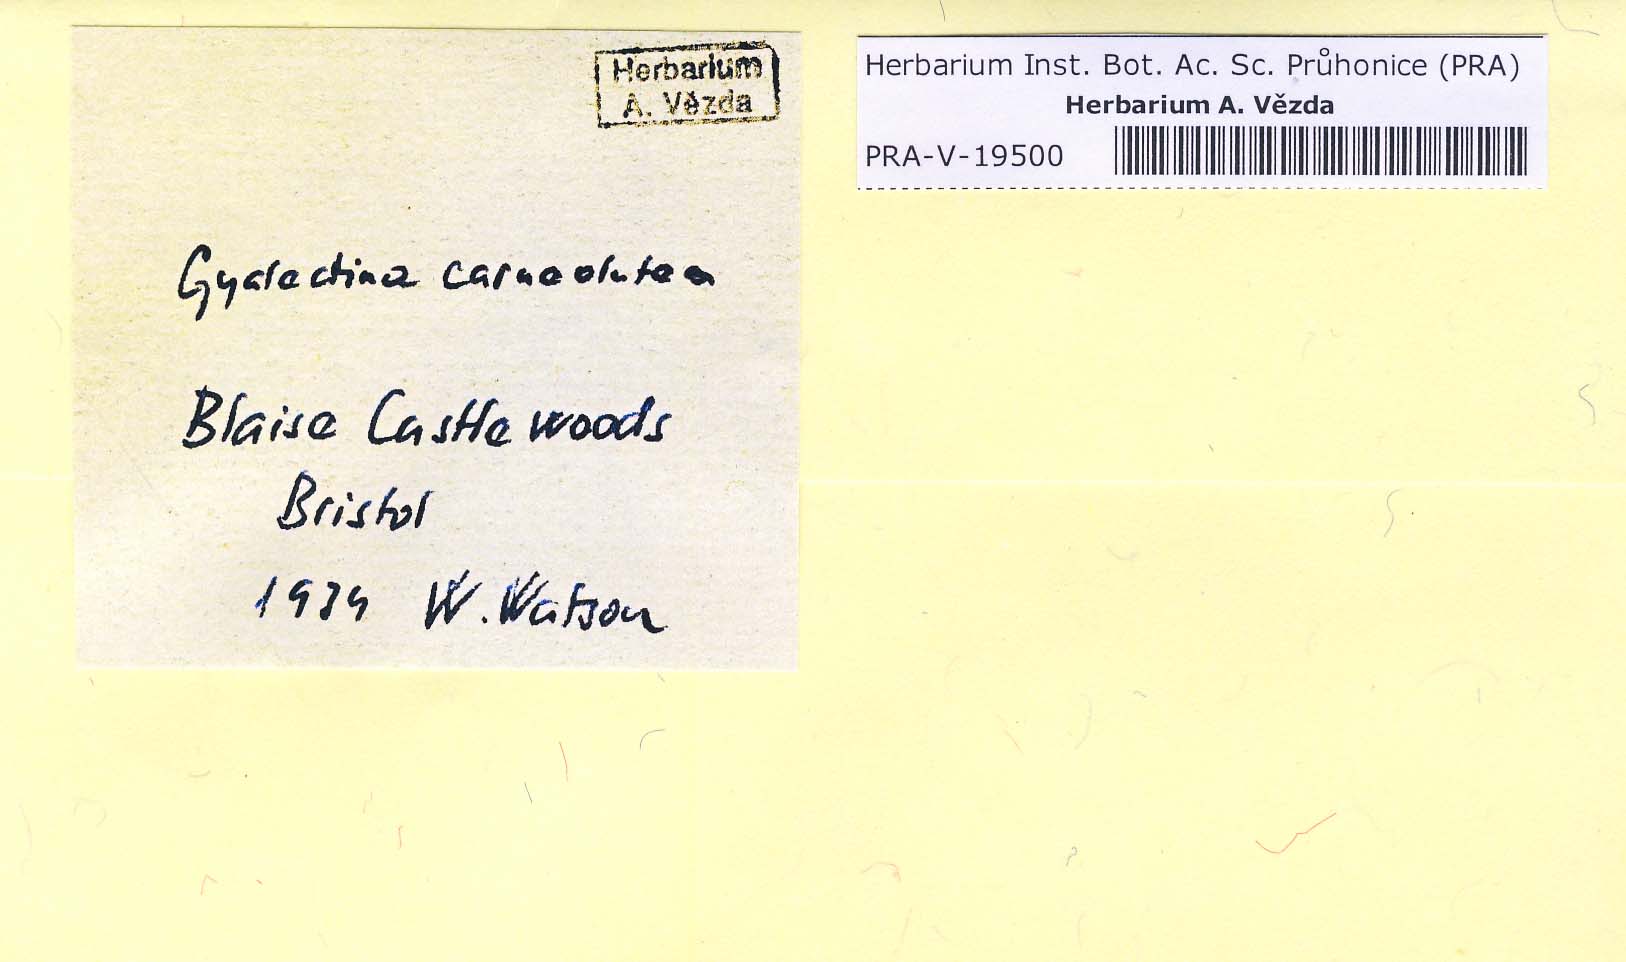 Herbarium
A. Vězda
Gyalectina carneolutea
Blaise Castle woods
Bristol
1939 W. Watson
Herbarium Inst. Bot. Ac. Sc. Průhonice (PRA)
Herbarium A. Vězda
PRA-V-19500